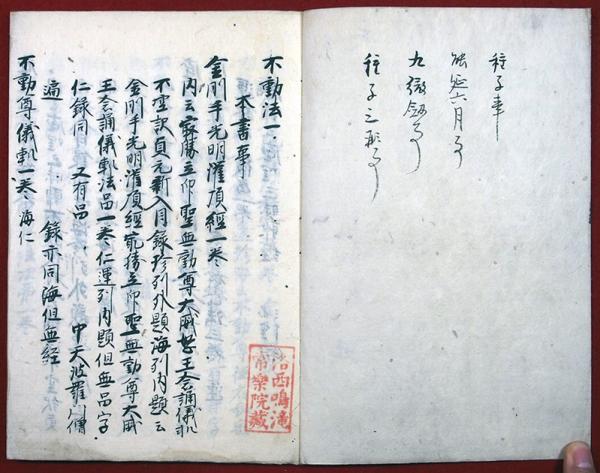 種子事
九徴釼事
種子三形事
不動法一
本書事
金剛手光明灌頂經一卷
内云最勝立印聖無動尊大威怒王念誦儀軌
不空訳貞元新入目録珍列外題海列内題云
金剛手光明灌頂經最勝立印聖無動尊大威
王念誦儀軌法品一卷仁運列内題但無品字
仁録同 又有品 中天波羅門僧
遍 録亦同海但無經
不動尊儀軌一卷海仁
洛西鳴滝
常樂院藏